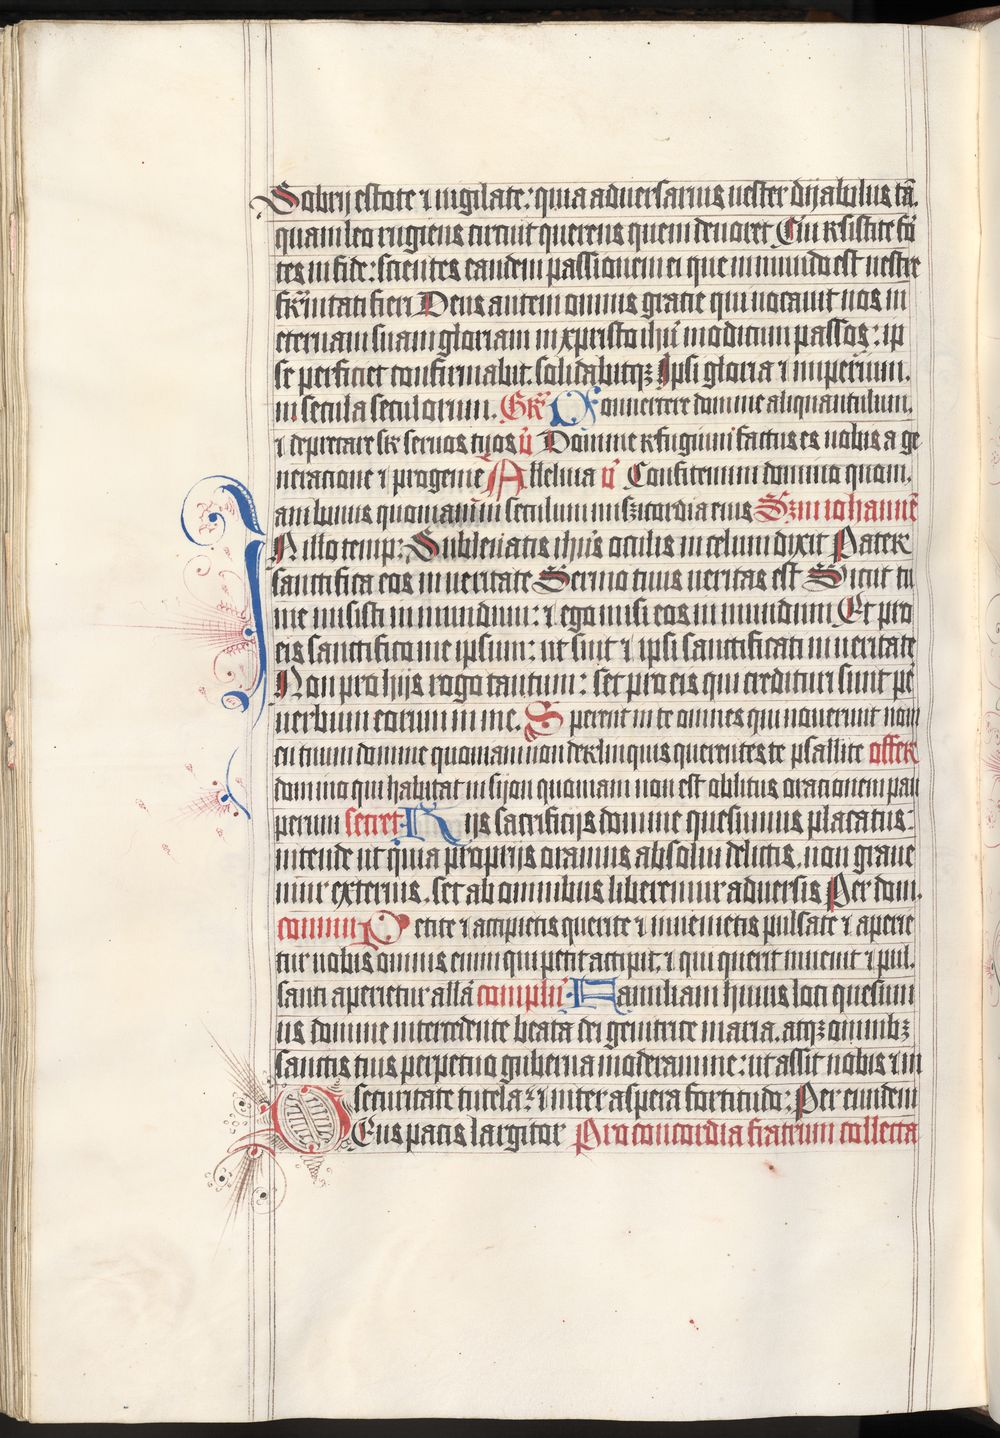 Sobrij estote ⁊ uigilate: quia aduersarius uester dijabulus tā.
quam leo rugiens circuit querens quem deuoret Cui resistite for
tes in fide: scientes eandem passionem ei que in mundo est uestre
fr̄nitati fieri Deus autem omnis gratie qui uocauit nos in
eternam suam gloriam in xpristo ihū modicum passos: ip
se perficiet confirmabit. solidabitqꝫ Ipsi gloria ⁊ imperium.
in secula seculorum. Gr̄ Conuertere domine aliquantulum.
⁊ deprecare sr̄ seruos tuos v̄ Domine refugium factus es nobis a ge
neratione ⁊ progenie Alleluia v̄ Confitemini domino quom.
am bonus quoniam in seculum mīsericordia eius Scdm iohannē
In illo temp: Subleuatis ihūs oculis in celum dixit Pater
sanctifica eos in ueritate Sermo tuus ueritas est Sicut tu
me misisti in mundum: ⁊ ego misi eos in mundum Et pro
eis sanctifico me ipsum: ut sint ⁊ ipsi sanctificati in ueritate
Non pro hijs rogo tantum: set pro eis qui credituri sunt per
uerbum eorum in me. Sperent in te omnes qui nouerunt nom
en tuum domine quoniam non derelinquis querentes te psallite offer
domino qui habitat in sijon quoniam non est oblitus orationem pau
perum secret Hijs sacrificijs domine quesumus placatus:
intende ut quia proprijs oramus absolui delictis. non graue
mur externis. set ab omnibus liberemur aduersis Per dom.
commu Petite ⁊ accipietis querite ⁊ inuenietis pulsate ⁊ aperie
tur uobis omnis enim qui petit accipit. ⁊ qui querit inuenit ⁊ pul.
santi aperietur allā complē Famíliam huius loci quesum
us domine intercedente beata dei genitrice maria. atqꝫ omnibꝫ
sanctis tuis perpetuo guberna moderamine: ut assit nobis ⁊ in
securitate tutela: ⁊ inter aspera fortitudo: Per eundem
Deus pacis largitor Pro concordia fratrum collecta